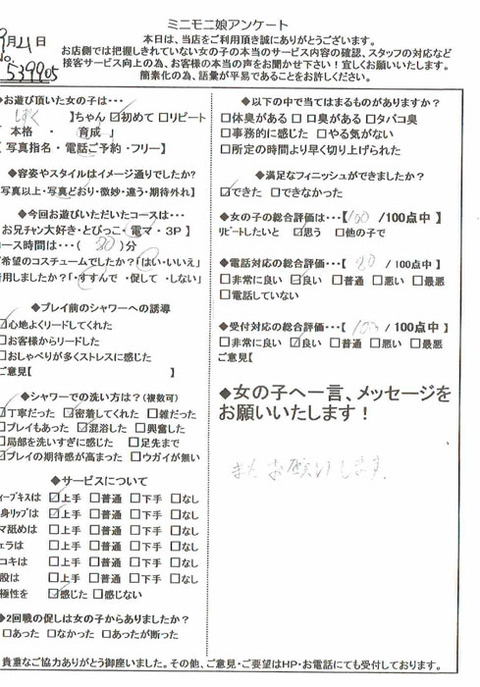 ミニモニ娘アンケート
9月21日
本日は、当店をご利用頂き誠にありがとうございます。
お店側では把握しきれていない女の子の本当のサービス内容の確認、スタッフの対応など
接客サービス向上の為、お客様の本当の声をお聞かせ下さい！宜しくお願いいたします。
簡素化の為、語彙が平易であることをお許しください。
539905
◆お遊び頂いた女の子は…
】ちゃん ☑初めて □リピート
本格 ・ 育成 」
写真指名・電話ご予約・フリー】
◆容姿やスタイルはイメージ通りでしたか?
写真以上・写真どおり・微妙・違う・期待外れ】
◆今回お遊びいただいたコースは…
お兄チャン大好き・とびっこ・電マ・3P 】
ース時間は…( 80 )分
希望のコスチュームでしたか?「はい・いいえ」
用しましたか?「・すすんで ・促して ・しない」
◆プレイ前のシャワーへの誘導
☑心地よくリードしてくれた
□お客様からリードした
□おしゃべりが多くストレスに感じた
ご意見【 】
◆シャワーでの洗い方は？(複数可)
☑丁寧だった ☑密着してくれた □雑だった
□プレイもあった ☑混浴した □興奮した
□局部を洗いすぎに感じた □足先まで
☑プレイの期待感が高まった □ウガイが無い
◆サービスについて
ィープキスは ☑上手 □普通 □下手 □なし
身リップは ☑上手 □普通 □下手 □なし
マ舐めは □上手 □普通 □下手 □なし
ェラは □上手 □普通 □下手 □なし
コキは □上手 □普通 □下手 □なし
股は □上手 □普通 □下手 □なし
極性を ☑感じた □感じない
◆2回戦の促しは女の子からありましたか？
□あった □なかった □あったが断った
◆以下の中で当てはまるものがありますか？
□体臭がある □口臭がある □タバコ臭
□事務的に感じた □やる気がない
□所定の時間より早く切り上げられた
◆満足なフィニッシュができましたか？
☑できた □できなかった
◆女の子の総合評価は…【100 /100点中 】
リピートしたいと ☑思う □他の子で
◆電話対応の総合評価…【 80 /100点中 】
□非常に良い ☑良い □普通 □悪い □最悪
□電話していない
◆受付対応の総合評価…【 100 / 100点中 】
□非常に良い ☑良い □普通 □悪い □最悪
ご意見【
◆女の子へ一言、メッセージを
お願いいたします！
またお願いします。
貴重なご協力ありがとう御座いました。その他、ご意見・ご要望はHP・お電話にても受付しております。